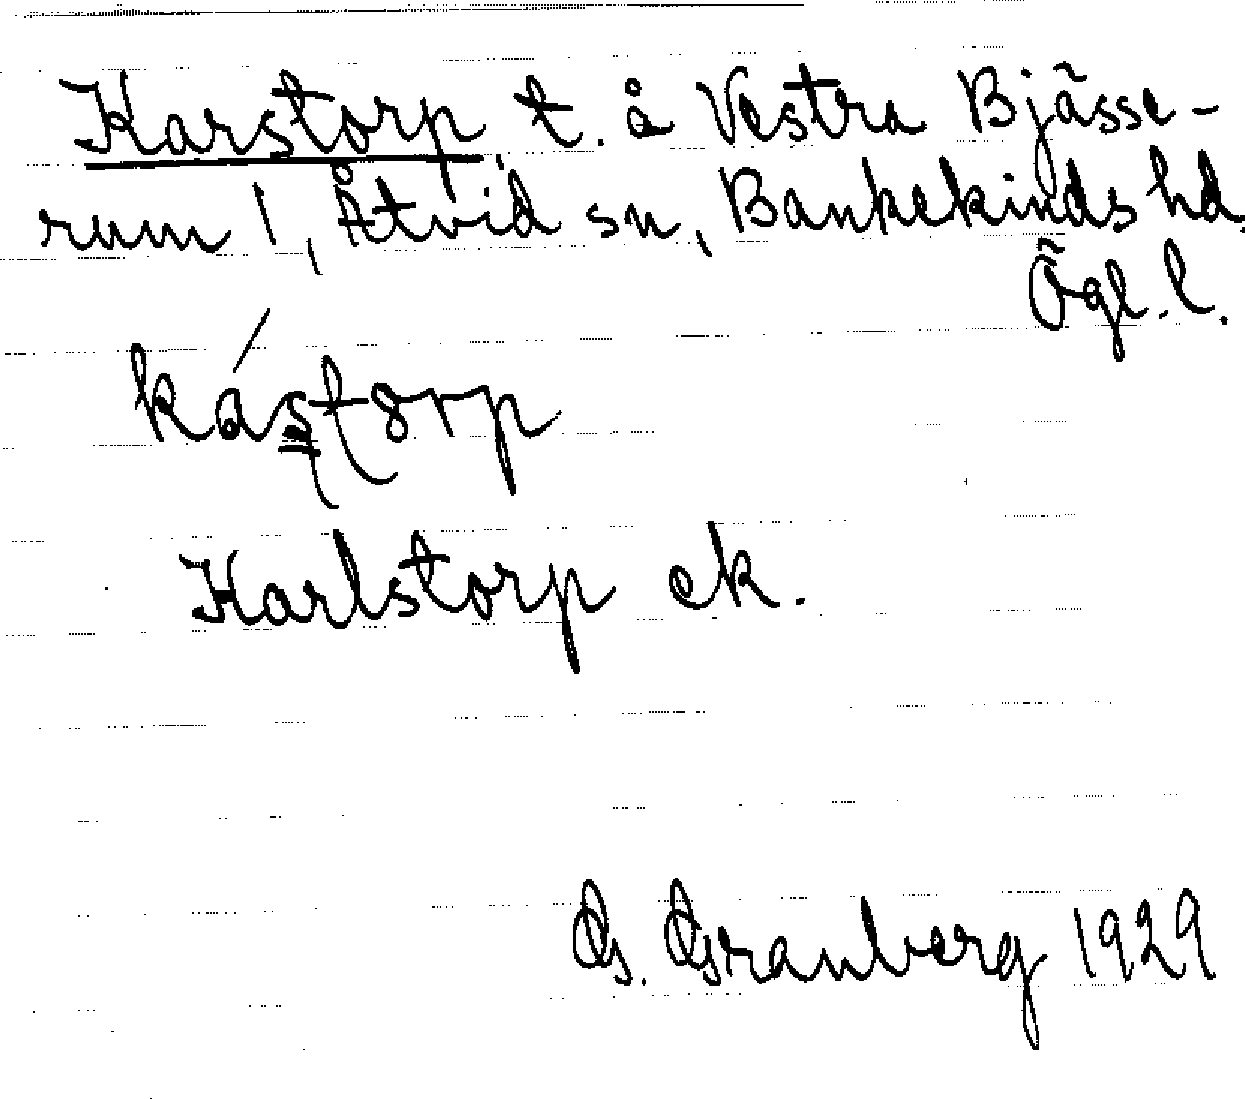 Karstorp t. å Vestra Bjässe-
rum 1, Åtvid sn, Bankekinds hd.
Ögl. l.
káştorp
Karlstorp ek.
G. Granberg 1929